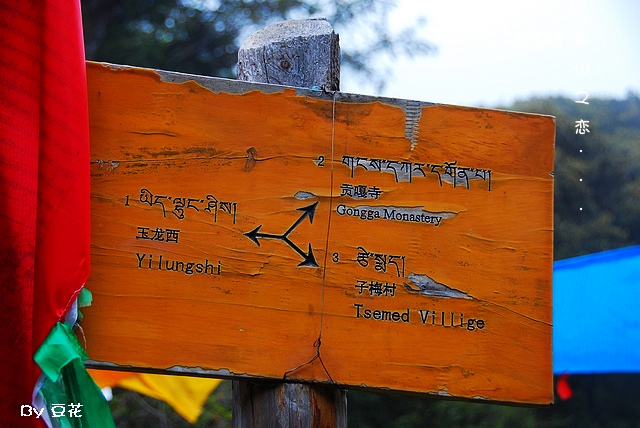 1 ཡིད་ལུང་ཤིས།
玉龙西
Yilungshi
2 གངས་དཀར་དགོན་པ།
贡嘎寺
Gongga Monastery
3 ཙེ་སྨད།
子梅村
Tsemed Villige
之恋....
By 豆花